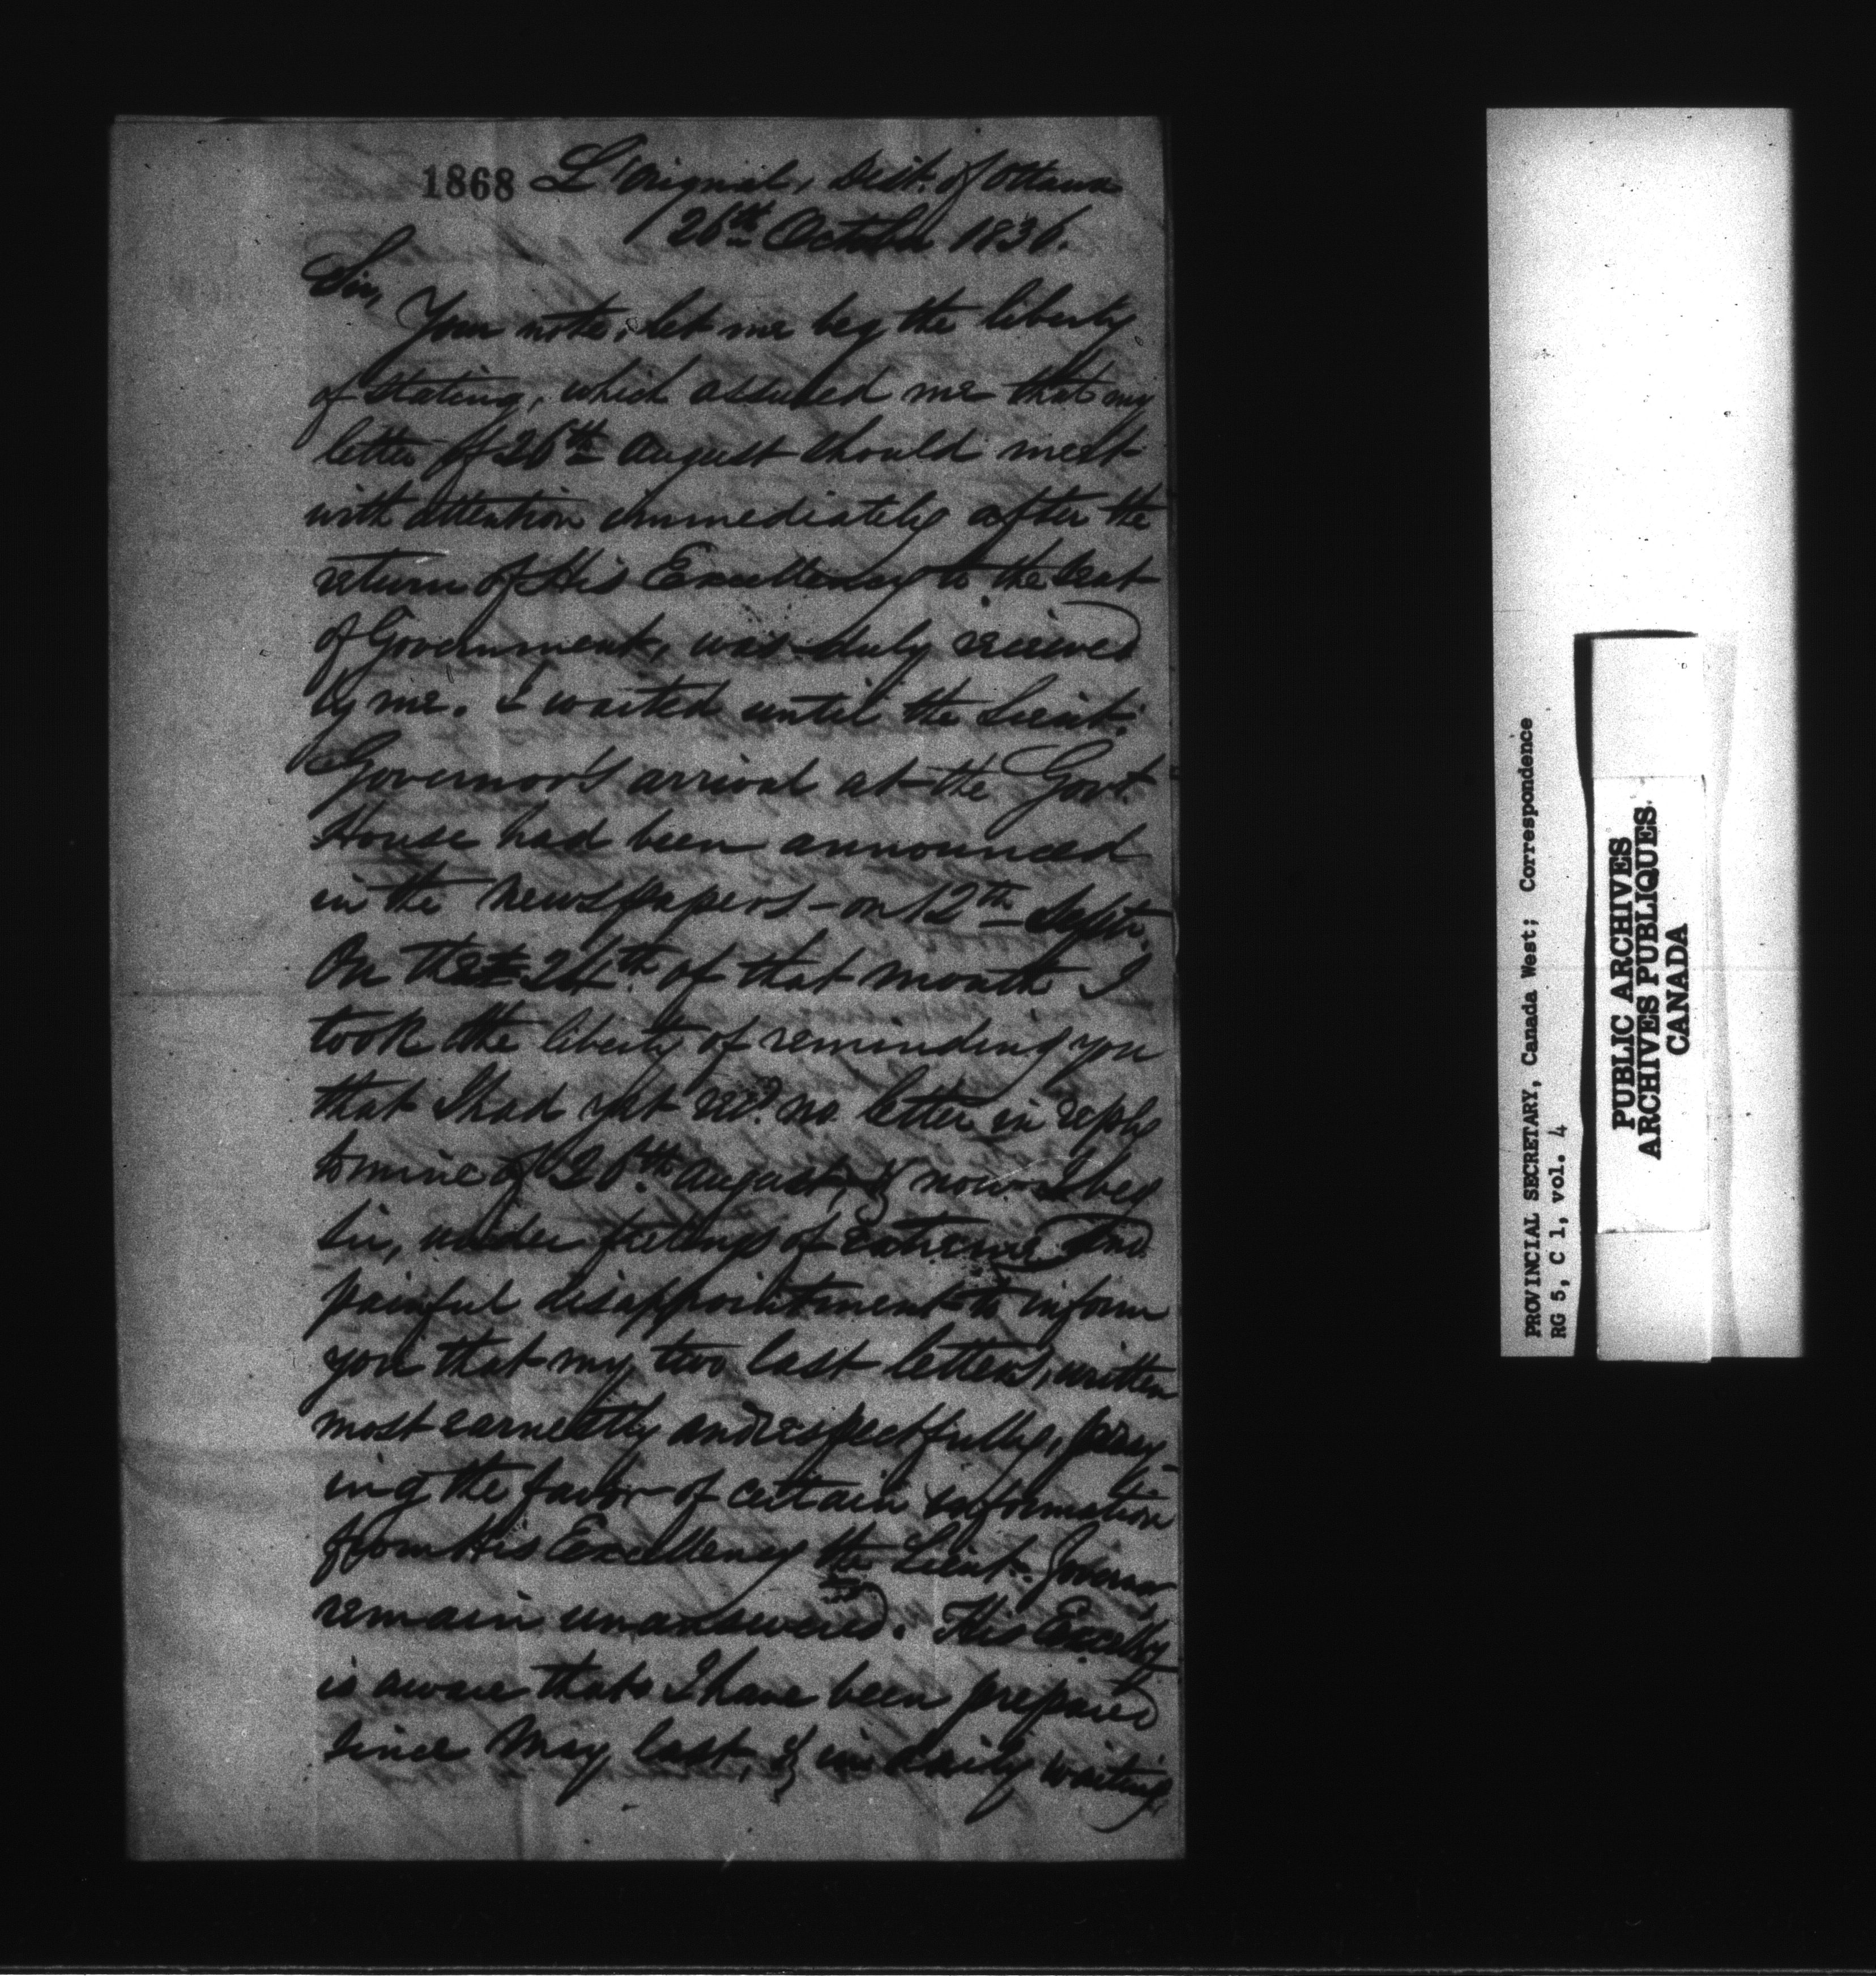 1868 L'Orignal, Dist. of Ottawa
26th October 1836.
Sir,
Your note, let me beg the liberty
of stating, which assured me that my
letter of 26th August should meet
with attention immediately after the
return of His Excellency to the Seat
of Government, was duly received
by me. I waited until the Lieut.
Governor's arrival at the Govt.
House had been announced
in the Newspapers - on 12th Septr.
On the 24th of that month I
took the liberty of reminding you
that I had yet recd. no letter in reply
to mine of 26th August, & now I beg
Sir, under feelings of extreme and
painful disappointment to inform
you that my two last letters, written
most earnestly and respectfully, pray-
ing the favor of certain information
from His Excellency the Lieut. Governor
remain unanswered. His Excelly
is aware that I have been prepared
since May last, & in daily waiting
PROVINCIAL SECRETARY, Canada West; Correspondence
RG 5, C 1, vol. 4
PUBLIC ARCHIVES
ARCHIVES PUBLIQUES
CANADA